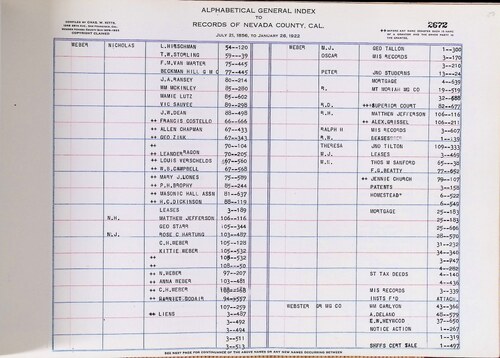 ALPHABETICAL GENERAL INDEX
TO
RECORDS OF NEVADA COUNTY, CAL.
JULY 21, 1856, TO JANUARY 26, 1922
COPYRIGHT CLAIMED
2672
WEBER NICHOLAS L.HIRSCHMAN 54--120 WEBER M.J. GEO TALLON 1--300
T.W.STORLING 59--39 OSCAR MIS RECORDS 3--170
F.M.VAN MARTER 75--445 3--210
BECKMAN HILL G M C 77--445 PETER JNO STUDERUS 13--24
J.A.RAMSEY 80--214 MORTGAGE 4--639
WM MCKINLEY 85--280 R. MT MORIAH MG CO 19--519
MAMIE LUTZ 85--602 32--588
VIC SAUVEE 89--298 R.D. ++SUPERIOR COURT 82--677
J.W.DEAN 88--498 R.H. MATTHEW JEFFERSON 106--116
++ FRANCIS COSTELLO 66--666 ++ALEX.GRISSEL 106--211
++ ALLEN CHAPMAN 67--433 RALPH H MIS RECORDS 3--607
++ GEO ZINK 67--343 R.N. LEASES 1--139
++ 70--104 THERESA JNO TILTON 109--333
++ LEANDER RAGON 70--205 W.J. LEASES 3--465
++ LOUIS VERSCHELDS 67--580 W.U. THOS W SANFORD 65--30
++ W.B.CAMPBELL 67--568 F.G.BEATTY 77--052
++ MARY J.JONES 75--599 ++ JENNIE CHURCH 79--107
++ P.H.BROPHY 85--244 PATENTS 3--158
++ MASONIC HALL ASSN 81--637 HOMESTEAD* 6--522
++ H.C.DICKINSON 88--119 6--548
LEASES 3--189 MORTGAGE 25--183
N.H. MATTHEW JEFFERSON 106--116 25--183
GEO STARR 105--344 25--606
N.J. ROSE G HARTUNG 103--487 28--570
C.H.WEBER 105--128 31--232
KITTIE WEBER 105--532 34--348
++ 108--532 35--247
++ 108--50 4--282
++ N.WEBER 97--207 ST TAX DEEDS 4--140
++ ANNA REBER 103--481 4--436
++ C.H.WEBER MIS RECORDS 3--339
++ HARRIET.GOOAIR 94--557 INSTS F*D ATTACH.
107--259 WEBSTER GR MG CO WM CARLYON 43--366
++ LIENS 3--487 A.DELANO 48--579
3--492 E.W.HEYWOOD 37--650
3--494 NOTICE ACTION 1--267
3--511 1--319
3--513 SHFFS CERT SALE 1--497
SEE NEXT PAGE FOR CONTINUANCE OF THE ABOVE NAMES OR ANY NEW NAMES OCCURRING BETWEEN